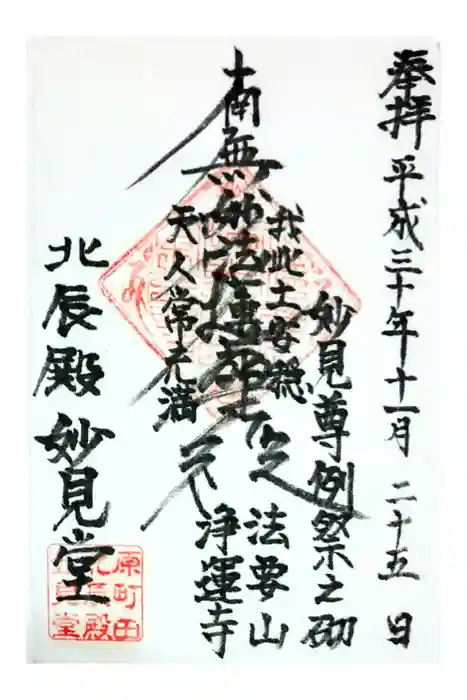 奉拝 平成三十年十一月二十五日
妙見尊例祭之砌
我此土安穏
南無妙法蓮華経
天人常充満
法要山
浄運寺
北辰殿 妙見堂
原町田
北辰殿
妙見堂